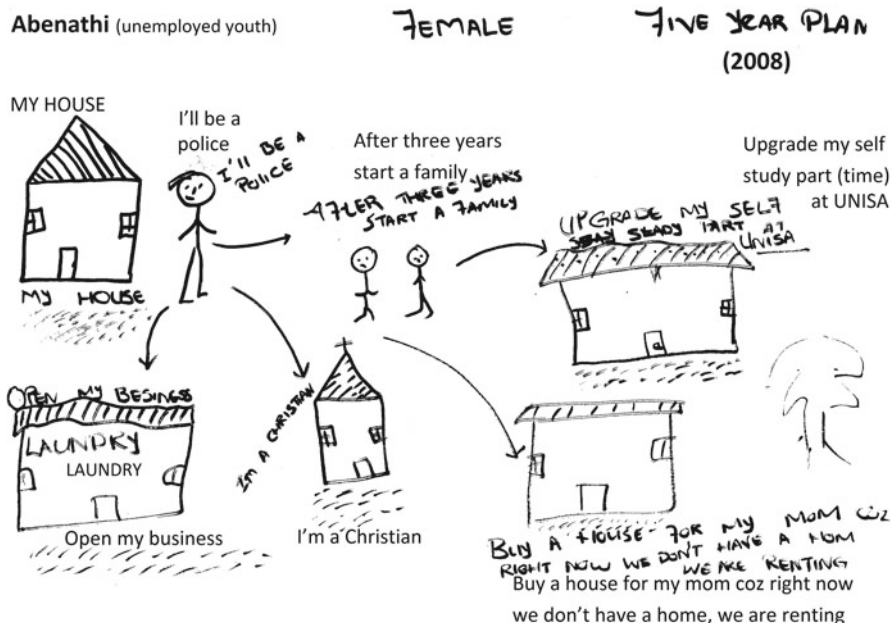 Abenathi (unemployed youth)
FEMALE
FIVE YEAR PLAN
(2008)
MY HOUSE
MY HOUSE
I'll be a
police
I'LL BE A
POLICE
After three years
start a family
AFTER THREE YEARS
START A FAMILY
Upgrade my self
study part (time)
at UNISA
UPGRADE MY SELF
STEADY PART AT
UNISA
OPEN MY BESINESS
LAUNDRY
LAUNDRY
Open my business
I'M A CHRISTIAN
I'm a Christian
BUY A HOUSE FOR MY MOM COZ
RIGHT NOW WE DON'T HAVE A HOM
WE ARE RENTING
Buy a house for my mom coz right now
we don't have a home, we are renting